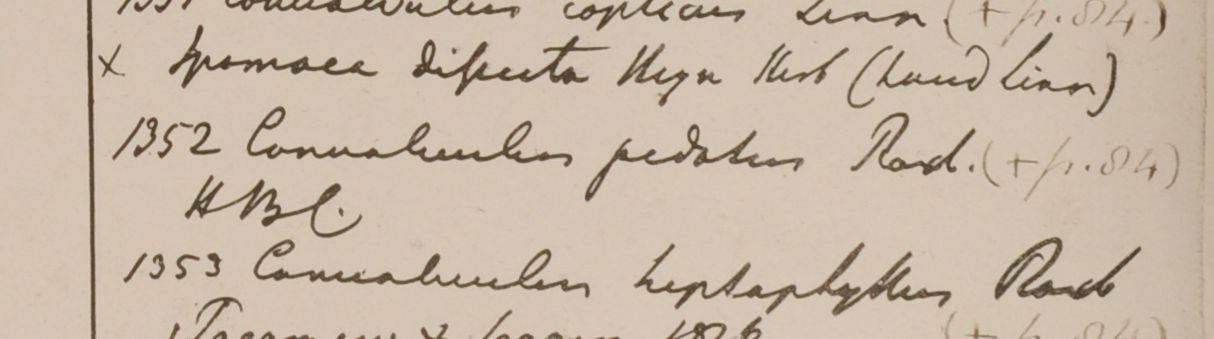 1351 Convolvulus copticus Linn. (+ p. 84.)
x Ipomaea dissecta Heyn Herb (haud Linn)
1352 Convolvulus pedatus Roxb. (+ p. 84)
H B C.
1353 Convolvulus heptaphyllus Roxb
(+ p. 84)